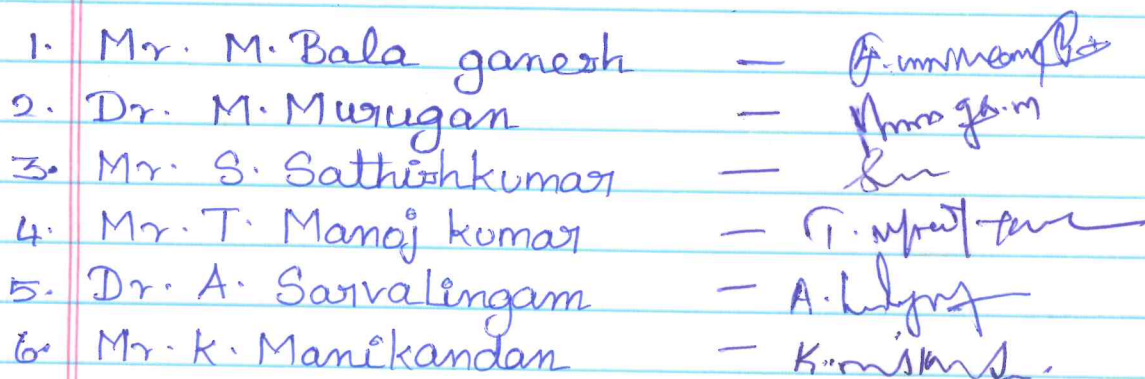 1. Mr. M. Bala ganesh –
2. Dr. M. Murugan –
3. Mr. S. Sathishkumar –
4. Mr. T. Manoj kumar –
5. Dr. A. Sarvalingam – A.
6. Mr. K. Manikandan –